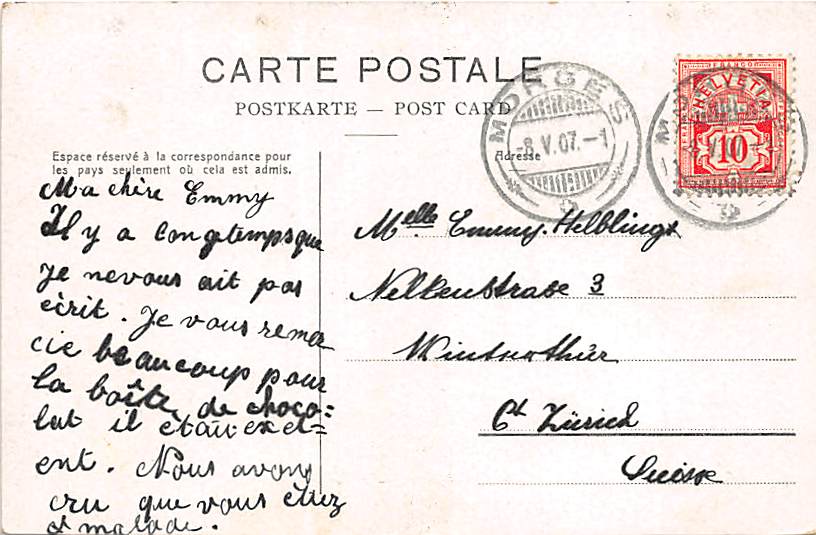 CARTE POSTALE
POSTKARTE — POST CARD
Espace réservé à la correspondance pour
les pays seulement où cela est admis.
Adresse
MORGES
-8.V.07.-1
FRANCO
HELVETIA
10
Ma chère Emmy
Il y a longtemps que
je ne vous ait pas
écrit. Je vous remer
cie beaucoup pour
la boîte de choco=
lat il etait exel=
ent. Nous avons
cru que vous étiez
malade.
Melle Emmy. Helblingt
Nelkenstrase 3
Winterthur
Ct Zürich
Suisse